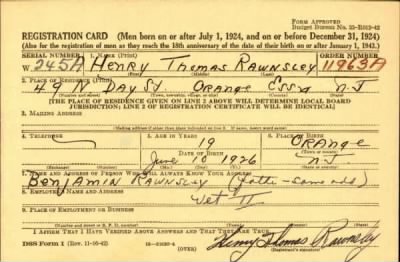 FORM APPROVED
Budget Bureau No. 33-R012-42
REGISTRATION CARD—(Men born on or after July 1, 1924, and on or before December 31, 1924)
(Also for the registration of men as they reach the 18th anniversary of the date of their birth on or after January 1, 1943.)
SERIAL NUMBER 1. NAME (Print) ORDER NUMBER
W 245A Henry Thomas Rawnsley 11963A
2. PLACE OF RESIDENCE (Print)
49 N Day St Orange Essex N-J
[THE PLACE OF RESIDENCE GIVEN ON LINE 2 ABOVE WILL DETERMINE LOCAL BOARD
JURISDICTION; LINE 2 OF REGISTRATION CERTIFICATE WILL BE IDENTICAL]
3. MAILING ADDRESS
[Mailing address if other than place indicated on line 2. If same, insert word same]
4. TELEPHONE 5. AGE IN YEARS 6. PLACE OF BIRTH
19 Orange
DATE OF BIRTH (Town or county)
June 10 1926 N-J
7. NAME AND ADDRESS OF PERSON WHO WILL ALWAYS KNOW YOUR ADDRESS
Benjamin Rawnsley
8. EMPLOYER'S NAME AND ADDRESS
9. PLACE OF EMPLOYMENT OR BUSINESS
I AFFIRM THAT I HAVE VERIFIED ABOVE ANSWERS AND THAT THEY ARE TRUE.
DSS Form 1 (Rev. 11-16-42) (OVER) Henry Thomas Rawnsley